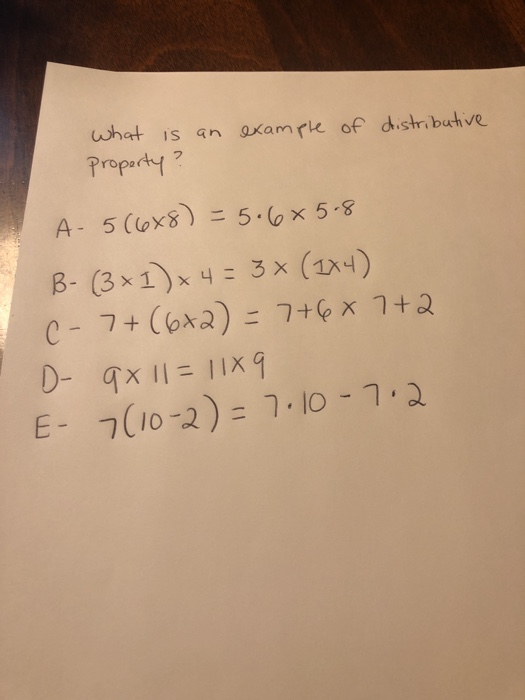 What is an example of distributive
Property?
A- 5(6x8) = 5·6 x 5·8
B- (3 x 1) x 4 = 3 x (1x4)
C- 7+(6x2) = 7+6 x 7+2
D- 9x11 = 11x9
E- 7(10-2) = 7·10 - 7·2